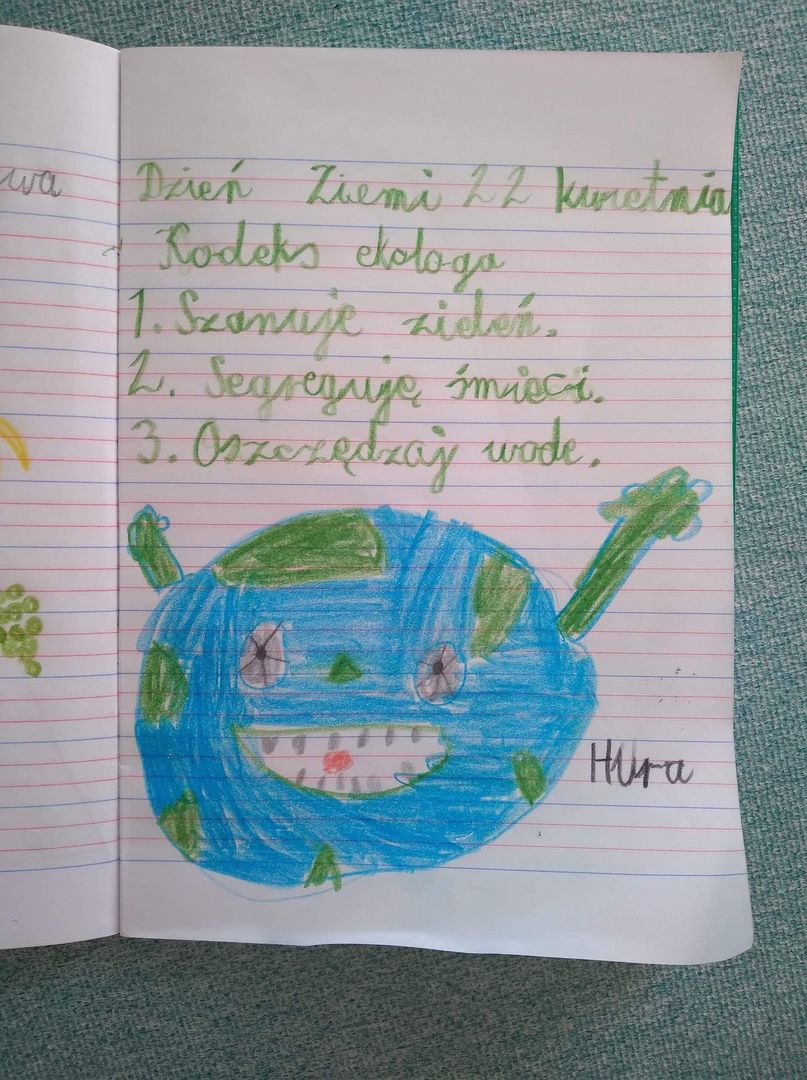 wa
Dzień Ziemi 22 kwietnia
Kodeks ekologa
1. Szanuje zieleń.
2. Segreguję śmieci.
3. Oszczędzaj wode.
Hura